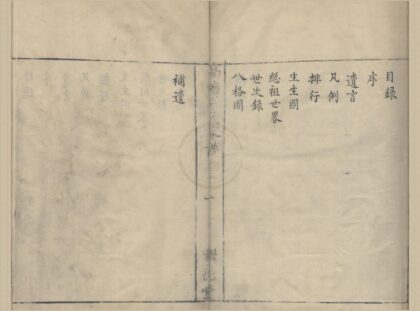 目錄
序
遺言
凡例
排行
生生圖
總祖世畧
世次錄
八格圖
一
補遺